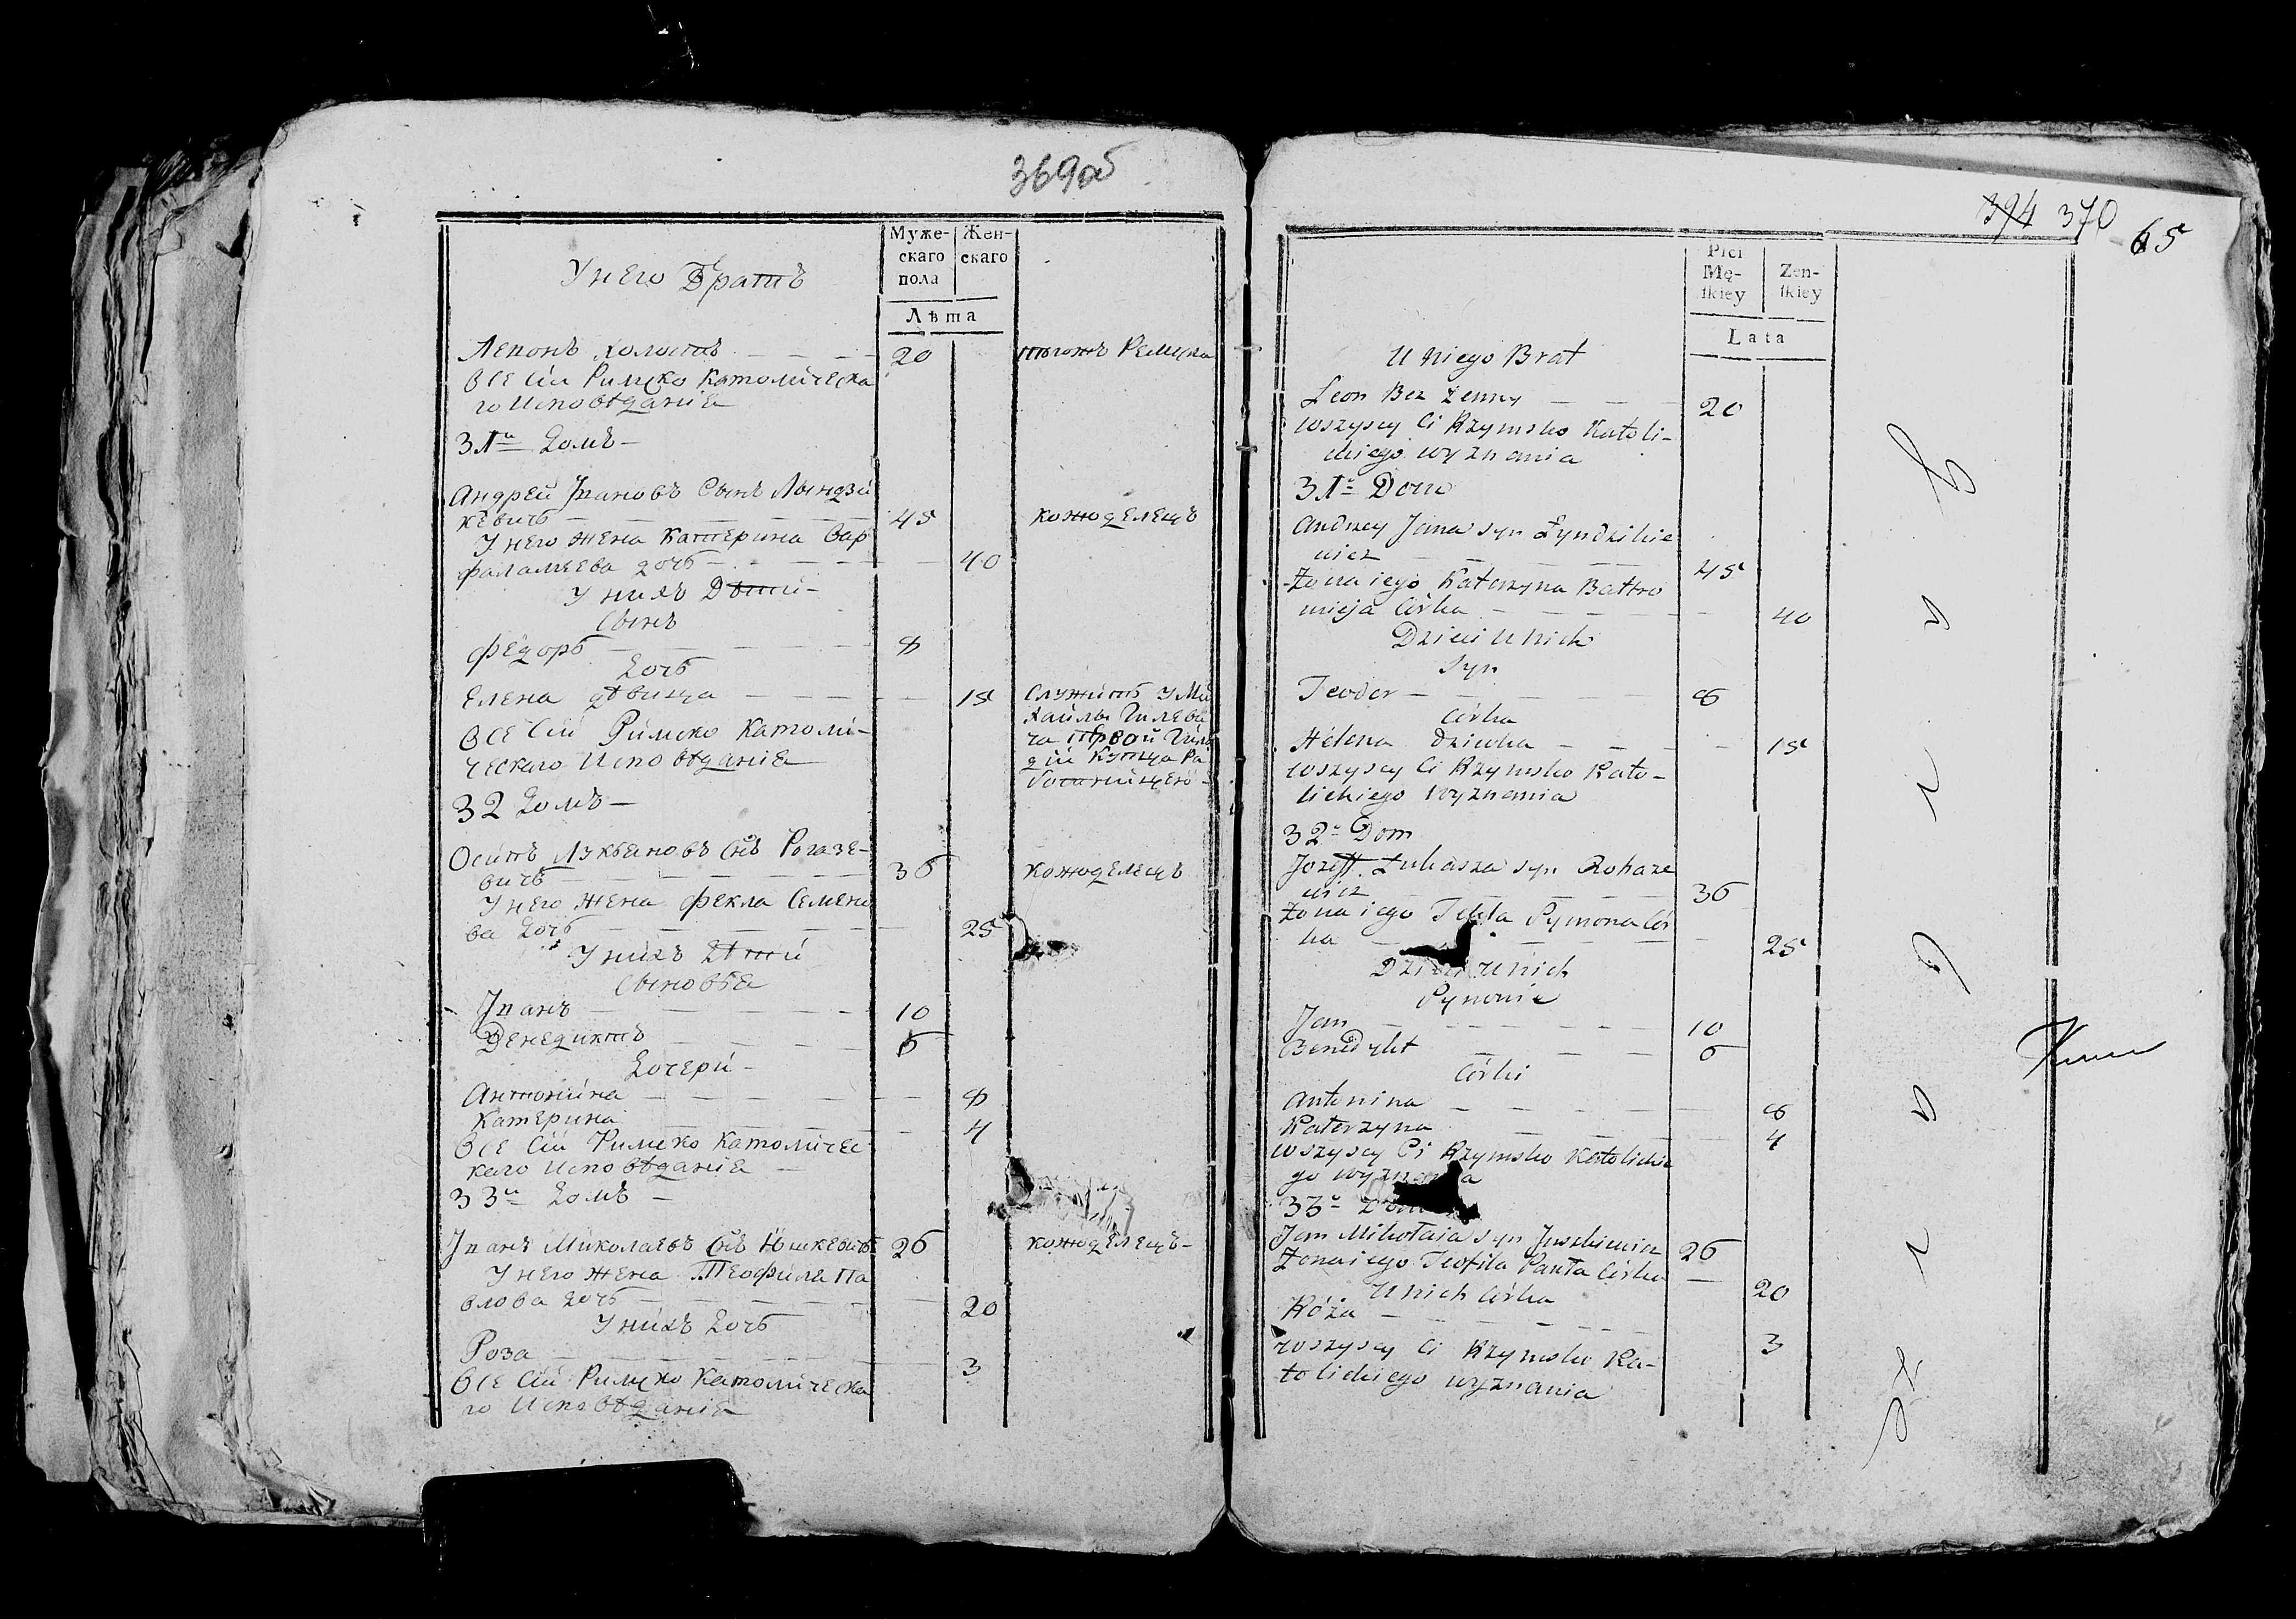 369об
Мужескаго пола
Женскаго
Лѣта
У него Братъ
Леионъ холостъ — — — 20 тогожъ Ремесла
Все сіи Римско Католическа
го Исповѣданіе
31й Домъ —
Андрей Јвановъ Сынъ Лындзи
кевичь — — — 45 кожоделецъ
У него жена Катерина Вар
фаламеева дочь — — — 40
У нихъ Дѣти —
Сынъ
Федоръ — — — 8
Дочь
Елена дѣвица — — — 15 Служитъ у Ми
хайлы Гилеви
Все Сіи Римско Католи-
ча первой Гиль
ческаго Исповѣданіе
діи Купца Ра
ботницею —
32 Домъ —
Осипъ Лукьяновъ Снъ Рогазе-
вичь — — — 36 кожоделецъ
У него жена Фекла Семено
ва Дочь — — — 25
У нихъ Дѣти
Сыновья
Јванъ — — — 10
Венедиктъ — — — 6
Дочери —
Антонина — — — 8
Катерина — — — 4
Все Сіи Римско Католичес
каго Исповѣданіе —
33й Домъ —
Јванъ Миколаевъ Снъ Юшкевичь 26 кожоделецъ —
У него жена Теофиля Па
влова дочь — — — 20
У нихъ Дочь
Роза — — — 3
Все Сіи Римско Католическа
го Исповѣданіе
394 370
65
Płci Mę-ſkiey
Żen-ſkiey
Lata
U Niego Brat
Leon Bez Zenny — — — 20
wszyscy Ci Rzymsko Katoli-
ckiego wyznania
31º Dom
Andrzey Jana syn Łyndzikie
wicz — — — 45
Żona iego Katarzyna Bałtro
mieja Córka — — — 40
Dzieci U Nich
Syn
Teodor — — — 8
Córka
Helena Dziewka — — — 15
wszyscy Ci Rzymsko Kato-
lickiego Wyznania
32º Dom
Jozeff Łukasza syn Rohaze
wicz — — — 36
Żona iego Tekla Symona Cór
ka — — — 25
Dzieci U Nich
Synowie
Jan — — — 10
Benedykt — — — 6
Córki
Antonina — — — 8
Katarzyna — — — 4
wszyscy Ci Rzymsko Katolickie
go wyznania
33º Dom
Jan Mikołaia syn Juszkiewicz 26
Żona iego Teofila Pawła Córka — 20
U Nich Córka
Róża — — — 3
wszyscy Ci Rzymsko Ka-
tolickiego wyznania